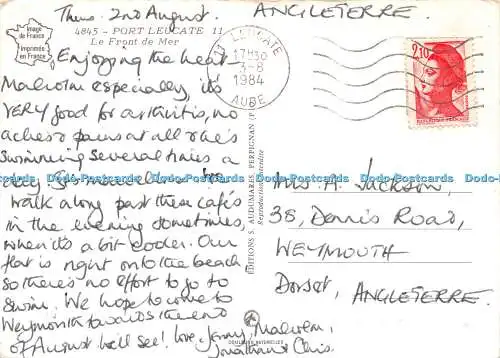 Thurs. 2nd August.
ANGLETERRE.
Image
de France
Imprimés
en France
4845 - PORT LEUCATE 11
Le Front de Mer
11 LEUCATE
17H30
3-8
1984
AUDE
2,10
Enjoying the heat -
Malcolm especially, it's
VERY good for arthritis, no
aches or pains at all & he's
swimming several times a
day.
walk along past these cafés
in the evening sometimes,
when it's a bit cooler. Our
flat is right onto the beach
so there's no effort to go to
swim. We hope to come to
Weymouth towards the end
of August. We'll see! Love, Jenny, Malcolm,
Jonathan & Chris.
EDITIONS S. AUDUMARES, PERPIGNAN, (P
Reproduction interdite
COULEURS NATURELLES
Mrs. A. Jackson,
38, Dennis Road,
WEYMOUTH
Dorset, ANGLETERRE.
Dodo-Postcards Dodo-Postcards Dodo-Postcards Dodo-Postcards Dodo-Postcards Dodo-Postcards